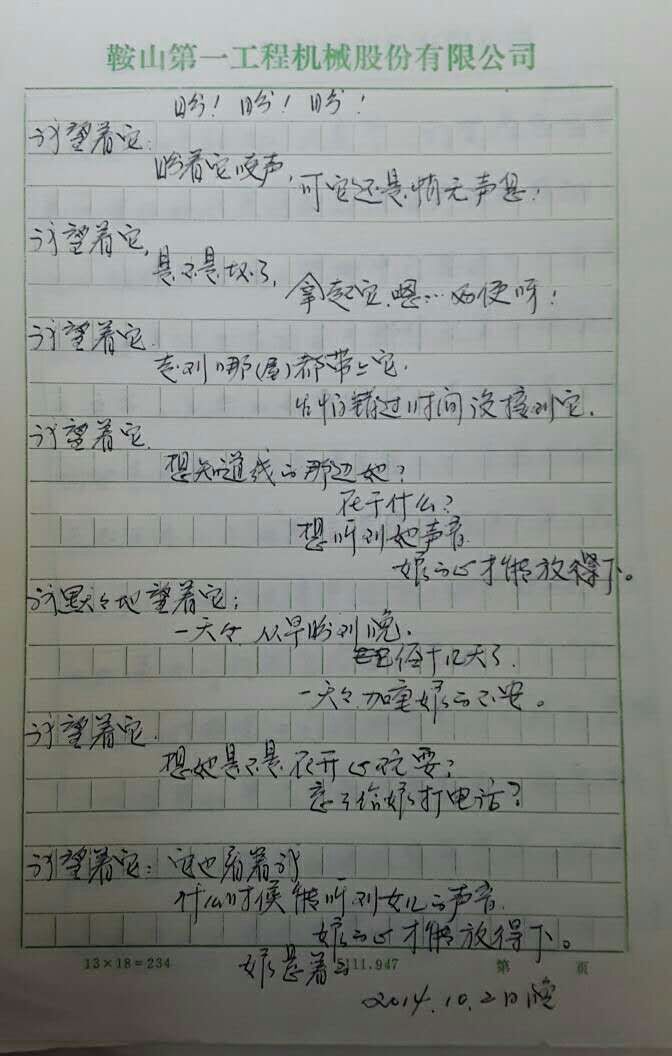 鞍山第一工程机械股份有限公司
盼！盼！盼！
我望着它：
盼着它吱声，可它还是悄无声息！
我望着它，
是不是坏了，拿起它，嗯…好使呀！
我望着它
走到哪（屋）都带上它．
生怕错过时间没接到它．
我望着它
想知道线的那边她？
在干什么？
想听到她声音
娘的心才能放得下。
我默々地望着它；
一天々从早盼到晚．
十几天了．
一天々加重娘的不安。
我望着它．
想她是不是在开心玩耍？
忘了给娘打电话？
我望着它：它也看着我
什么时候能听到女儿的声音
娘的心才能放得下。
13×18=234 111.947 第 页
娘悬着
2014.10.2日晚